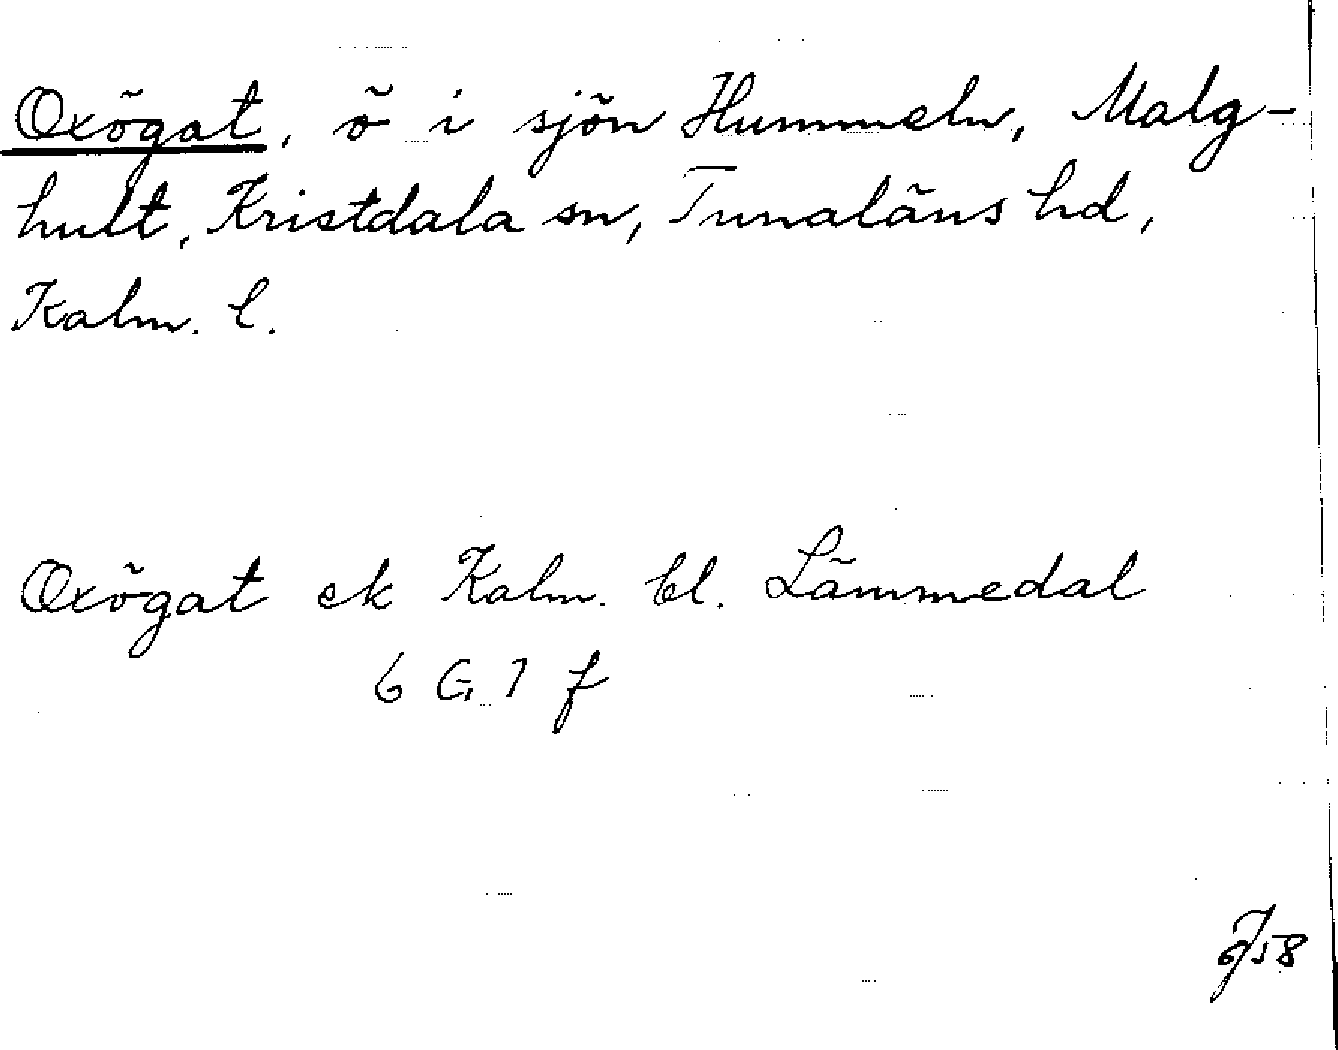 Oxögat, ö i sjön Hummeln, Malg-
hult, Kristdala sn, Tunaläns hd,
Kalm. l.
Oxögat ek Kalm. bl. Lämmedal
6 G 7 f
58